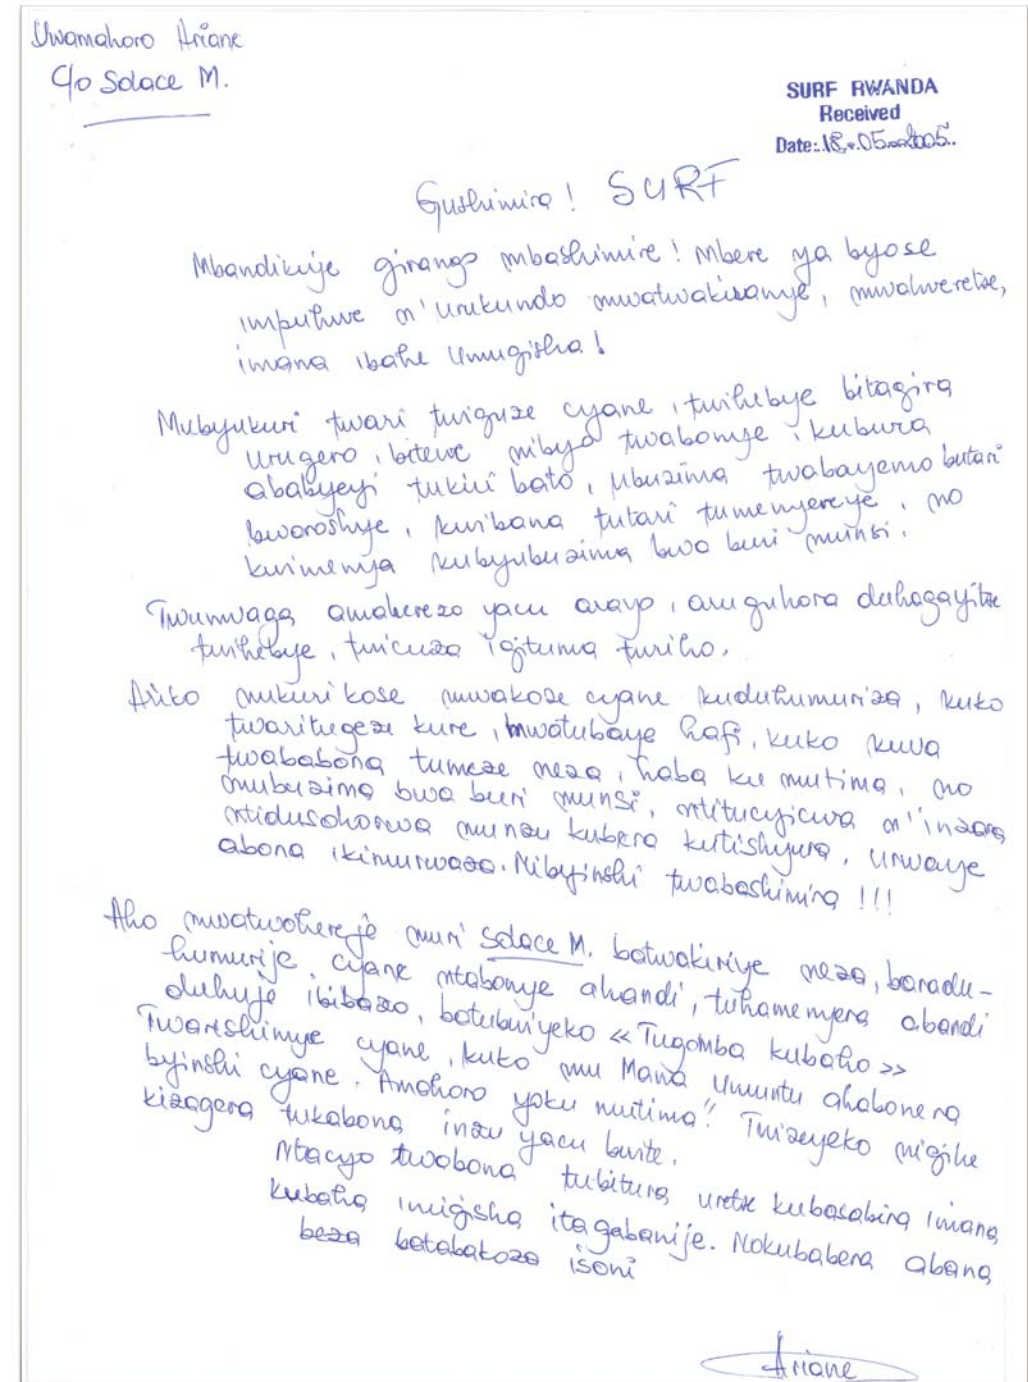 Uwamahoro Ariane
C/o Solace M.
SURF RWANDA
Received
Date: 18.05.2005.
Gushimira! SURF
Mbandikiye girango mbashimire! Mbere ya byose
impuhwe n'urukundo mwatwakiranye, mwatweretse,
imana ibahe Umugisha!
Mubyukuri twari twigunze cyane, twihebye bitagira
urugero, bitewe nibyo twabonye, kubura
ababyeyi tukiri bato, ubuzima twabayemo butari
bworoshye, kwibana tutari tumenyereye, no
kwimenya kubyubuzima bwa buri munsi.
Twumvaga amaherezo yacu arayo, aruguhora duhagayitse
twihebye, twicuza igituma turiho.
Ariko mukuri kose mwakoze cyane kuduhumuriza, kuko
twaritugeze kure, mwatubaye hafi, kuko kuva
twababona tumeze neza, haba ku mutima, no
mubuzima bwa buri munsi, ntitucyicwa n'inzara
ntidusohorwa munzu kubera kutishyura, urwaye
abona ikimurwaza. Nibyinshi twabashimira!!!
Aho mwatwohereje muri Solace M. batwakiriye neza, baradu-
humurije, cyane ntabonye ahandi, tuhamenyera abandi
duhuje ibibazo, batubwiyeko «Tugomba kubaho»
Twarishimye cyane, kuko mu Mana Umuntu ahabonera
byinshi cyane. Amahoro yoku mutima!! Twizeyeko nigihe
kizagera tukabona inzu yacu bwite.
Ntacyo twabona tubitura uretse kubasabira imana
kubaha imigisha itagabanije. Nokubabera abana
beza batabakoza isoni
Ariane